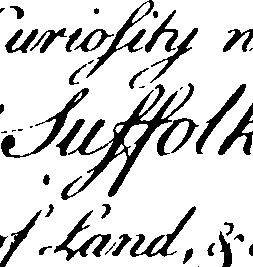 Curioſity n
Suffolk
of Land, &